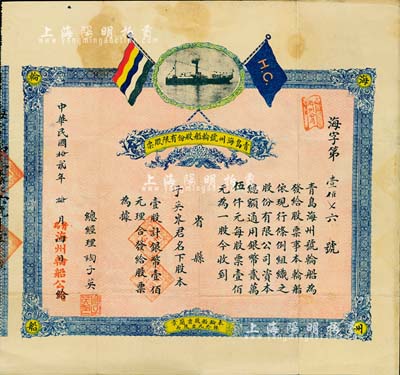 上海陽明拍賣
上海陽明拍賣
www.ymauction.com
HC
海
州
輪
船
青島海州號輪船股份有限股票
海字第
號
青島海州號輪船為
發給股票事本輪船
依現行條例組織之
股份有限公司資本
總額通用銀幣貳萬
伍仟元每股票壹佰
元為一股今收到
省 縣
君名下股本
壹股計銀幣壹佰
元理合發給股票
為據
總經理
中華民國拾貳年 月 日
海州輪船公 給